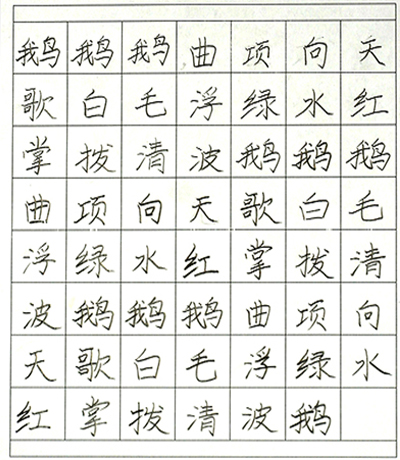 鹅鹅鹅曲项向天
歌白毛浮绿水红
掌拨清波鹅鹅鹅
曲项向天歌白毛
浮绿水红掌拨清
波鹅鹅鹅曲项向
天歌白毛浮绿水
红掌拨清波鹅